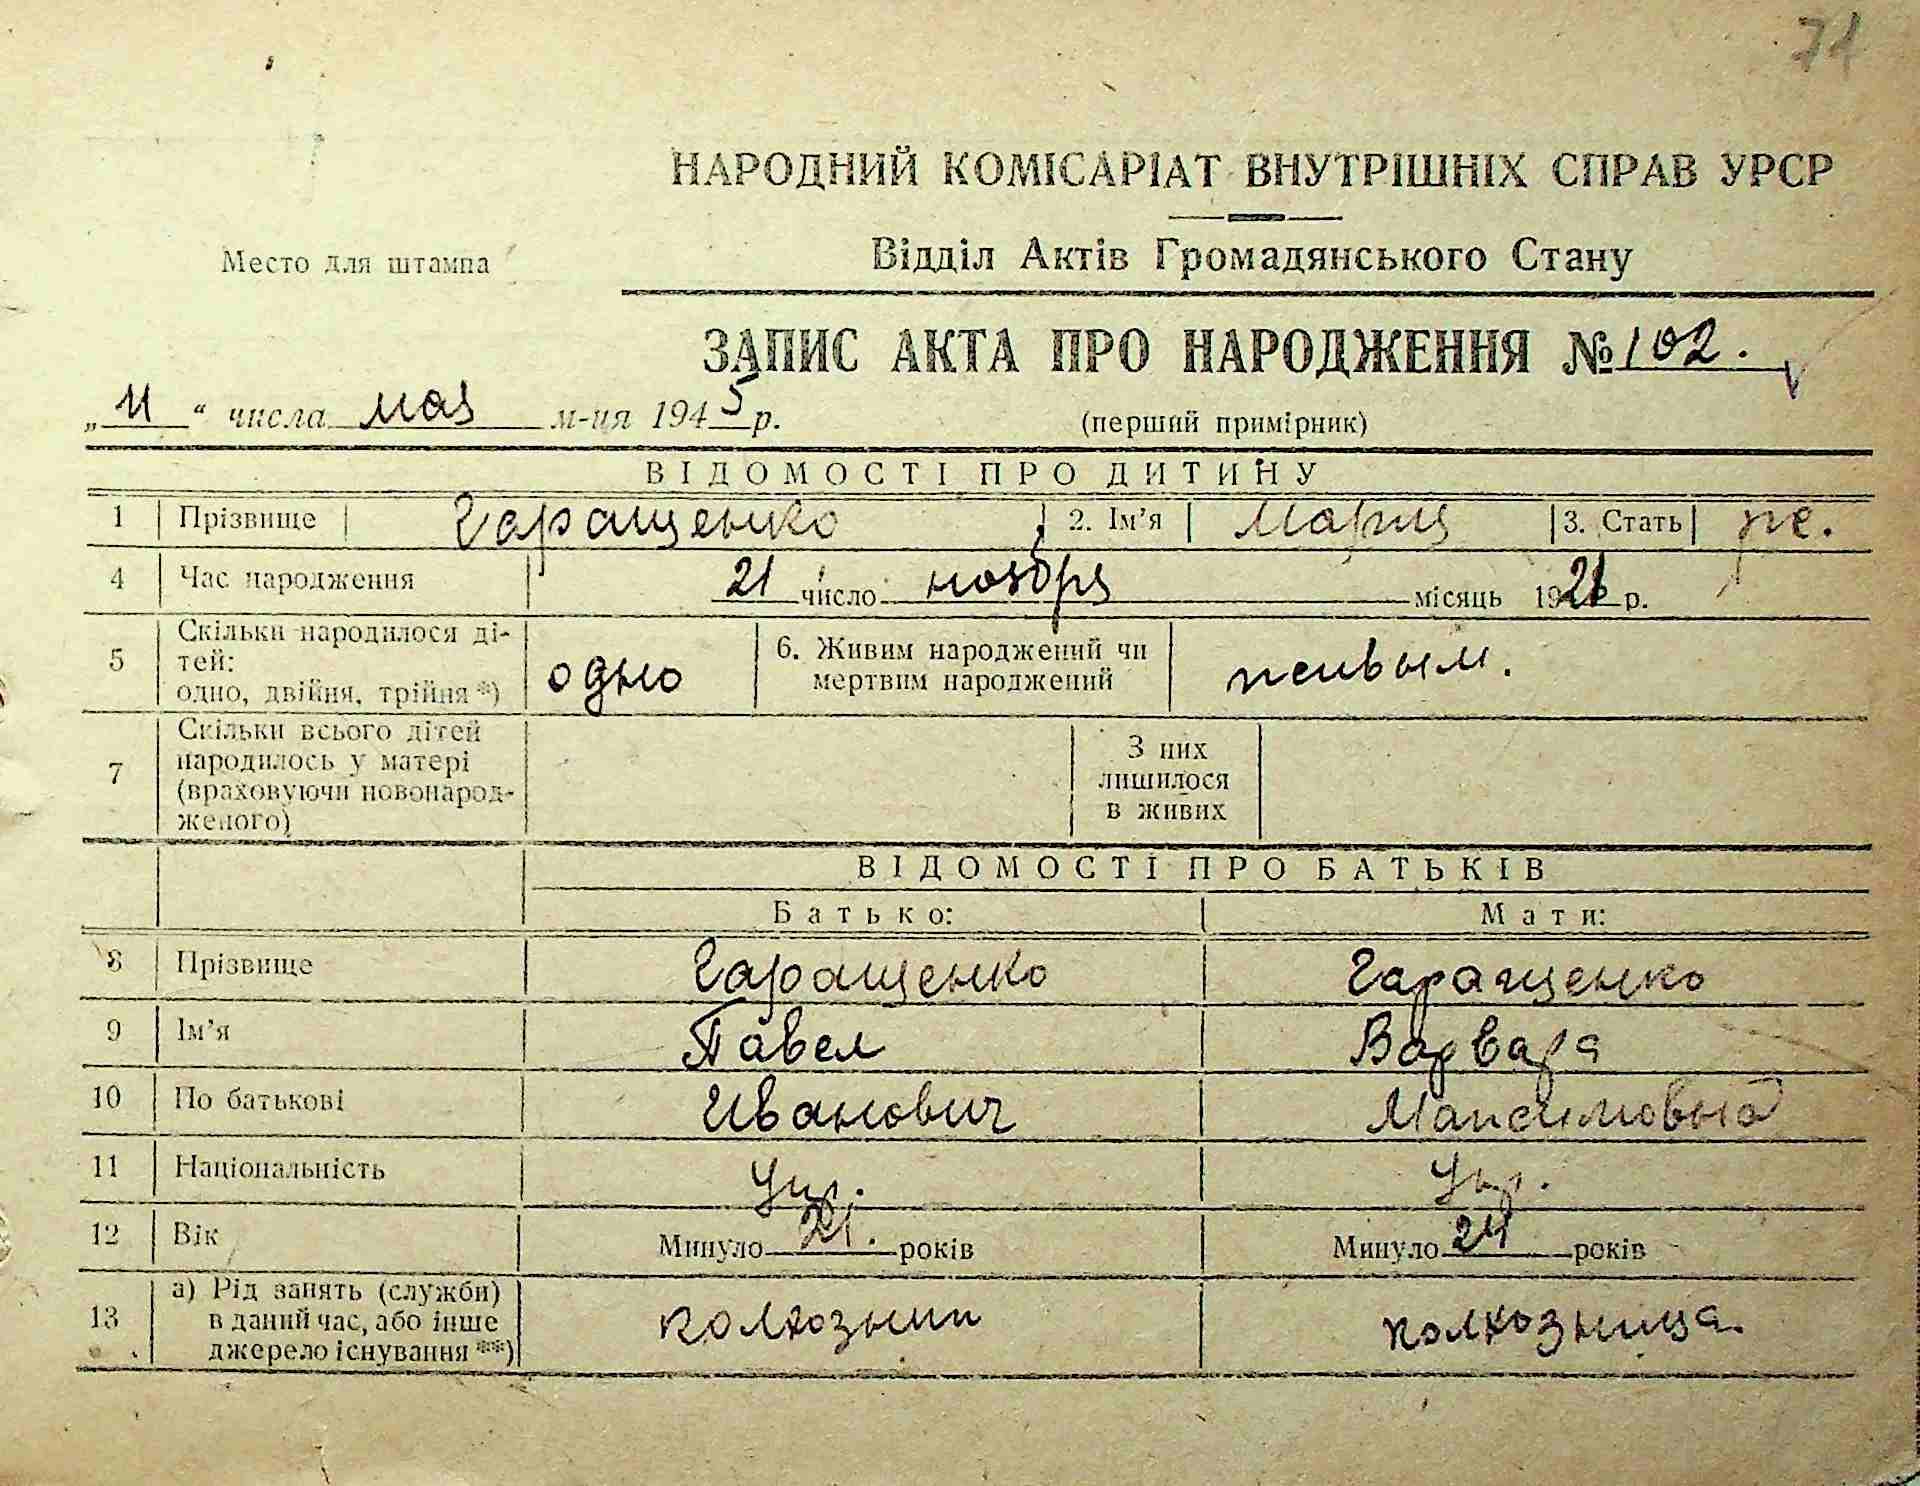 71
НАРОДНИЙ КОМІСАРІАТ ВНУТРІШНІХ СПРАВ УРСР
Место для штампа
Відділ Актів Громадянського Стану
ЗАПИС АКТА ПРО НАРОДЖЕННЯ № 102.
„11“ числа мая м-ця 1945 р.
(перший примірник)
ВІДОМОСТІ ПРО ДИТИНУ
1 Прізвище Гаращенко 2. Ім’я Мария 3. Стать же.
4 Час народження 21 число ноября місяць 1921 р.
5 Скільки народилося ді-
тей:
одно, двійня, трійня *) одно 6. Живим народжений чи
мертвим народжений живым.
7 Скільки всього дітей
народилось у матері
(враховуючи новонарод-
женого)
З них
лишилося
в живих
ВІДОМОСТІ ПРО БАТЬКІВ
Батько: Мати:
8 Прізвище Гаращенко Гаращенко
9 Ім’я Павел Варвара
10 По батькові Иванович Максимовна
11 Національність Укр. Укр.
12 Вік Минуло 21. років Минуло 24 років
13 а) Рід занять (служби)
в даний час, або інше
джерело існування **) колхозник колхозница.